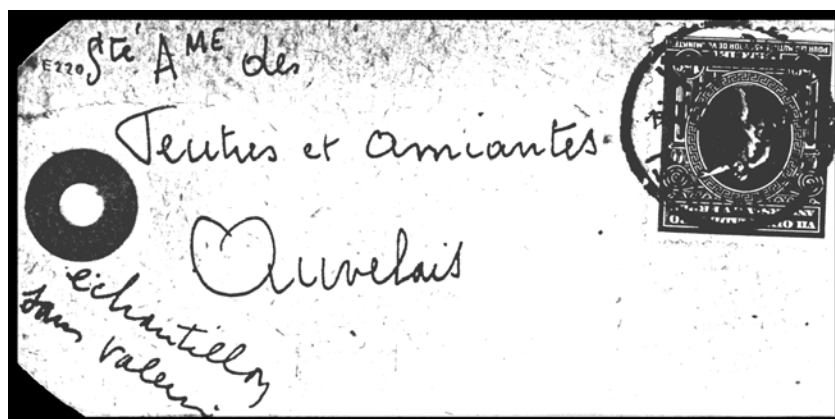 E220 Sté AME des
Feutres et Amiantes
Auvelais
échantillon
sans valeur